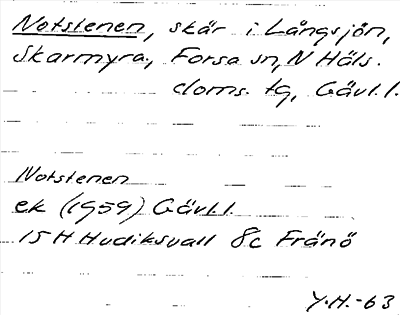 Notstenen, skär i Långsjön,
Skarmyra, Forsa sn, N Häls.
doms. tg, Gävl.l.
Notstenen
ek (1959) Gävl.l.
15H Hudiksvall 8c Fränö
Y.H.-63